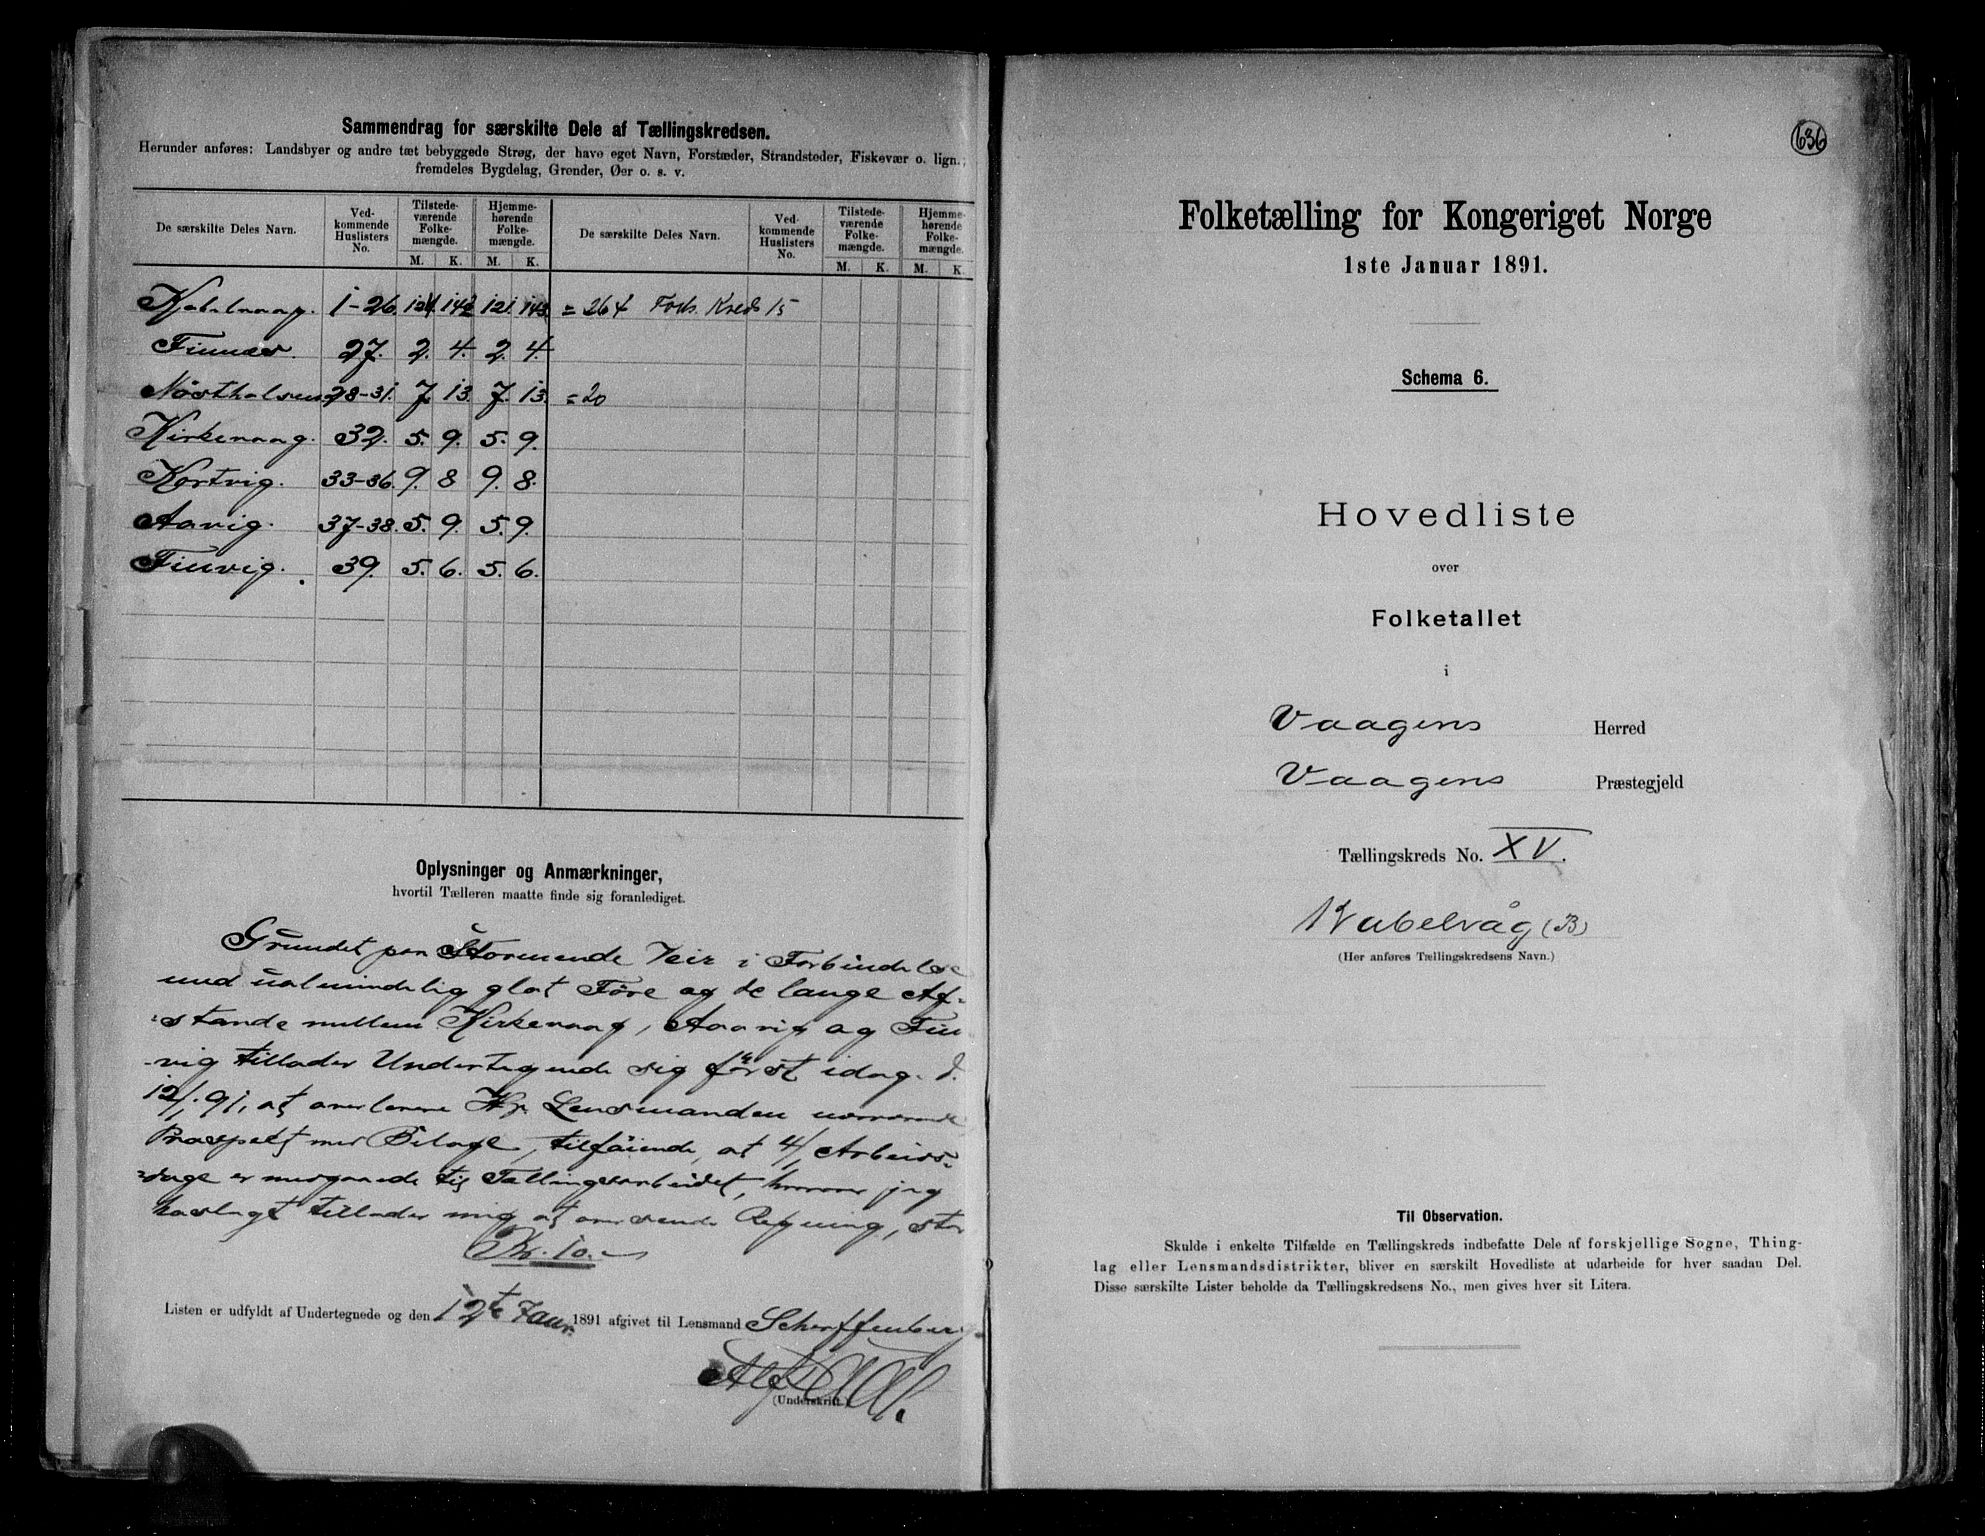 Sammendrag for særskilte Dele af Tællingskredsen.
Herunder anføres: Landsbyer og andre tæt bebyggede Strøg, der have eget Navn, Forstæder, Strandsteder, Fiskevær o. lign.,
fremdeles Bygdelag, Grender, Øer o. s. v.
De særskilte Deles Navn. Ved-kommende Huslisters No. Tilstede-værende Folke-mængde. Hjemme-hørende Folke-mængde. De særskilte Deles Navn. Ved-kommende Huslisters No. Tilstede-værende Folke-mængde. Hjemme-hørende Folke-mængde.
M. K. M. K. M. K. M. K.
Kabelvaag. 1-26. 121. 143 121. 143 = 264 Kreds 15
Finnæs. 27. 2. 4. 2. 4.
Nøstholmen 28-31. 7. 13. 7. 13. = 20
Kirkevaag. 32. 5. 9. 5. 9.
Kortvig. 33-36. 9. 8 9. 8.
Aavig. 37-38. 5. 9. 5. 9.
Finvig. 39. 5. 6. 5. 6.
Oplysninger og Anmærkninger,
hvortil Tælleren maatte finde sig foranlediget.
Grundet paa Stormende Veir i Forbindelse
med ualmindelig glat Føre og de lange Af-
stande mellem Kirkevaag, Aavig og Fin
-vig tillader Undertegnede sig først idag d.
12/1. 91, at overlevere Hr. Lensmanden nærværende
med Bilage, tilføiende, at 4/ Arbeids-
dage er medgaaede til Tællingsarbeidet, hvorover jeg
tillader mig at oversende Regning, stor
Kr. 10.-
Listen er udfyldt af Undertegnede og den 12te Janr. 1891 afgivet til Lensmand Scharffenberg
(Underskrift.)
636
Folketælling for Kongeriget Norge
1ste Januar 1891.
Schema 6.
Hovedliste
over
Folketallet
i
Vaagens Herred
Vaagens Præstegjeld
Tællingskreds No. XV.
Kabelvåg (B)
(Her anføres Tællingskredsens Navn.)
Til Observation.
Skulde i enkelte Tilfælde en Tællingskreds indbefatte Dele af forskjellige Sogne, Thing-
lag eller Lensmandsdistrikter, bliver en særskilt Hovedliste at udarbeide for hver saadan Del.
Disse særskilte Lister beholde da Tællingskredsens No., men gives hver sit Litera.